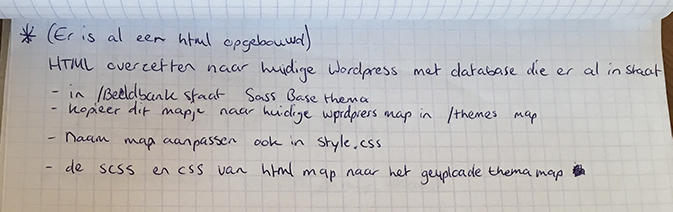 * (Er is al een html opgebouwd)
HTML overzetten naar huidige Wordpress met database die er al in staat
- in /Beeldbank staat Sass Base thema
- kopieer dit mapje naar huidige wordpress map in /themes map
- Naam map aanpassen ook in style.css
- de scss en css van html map naar het geuploade thema map